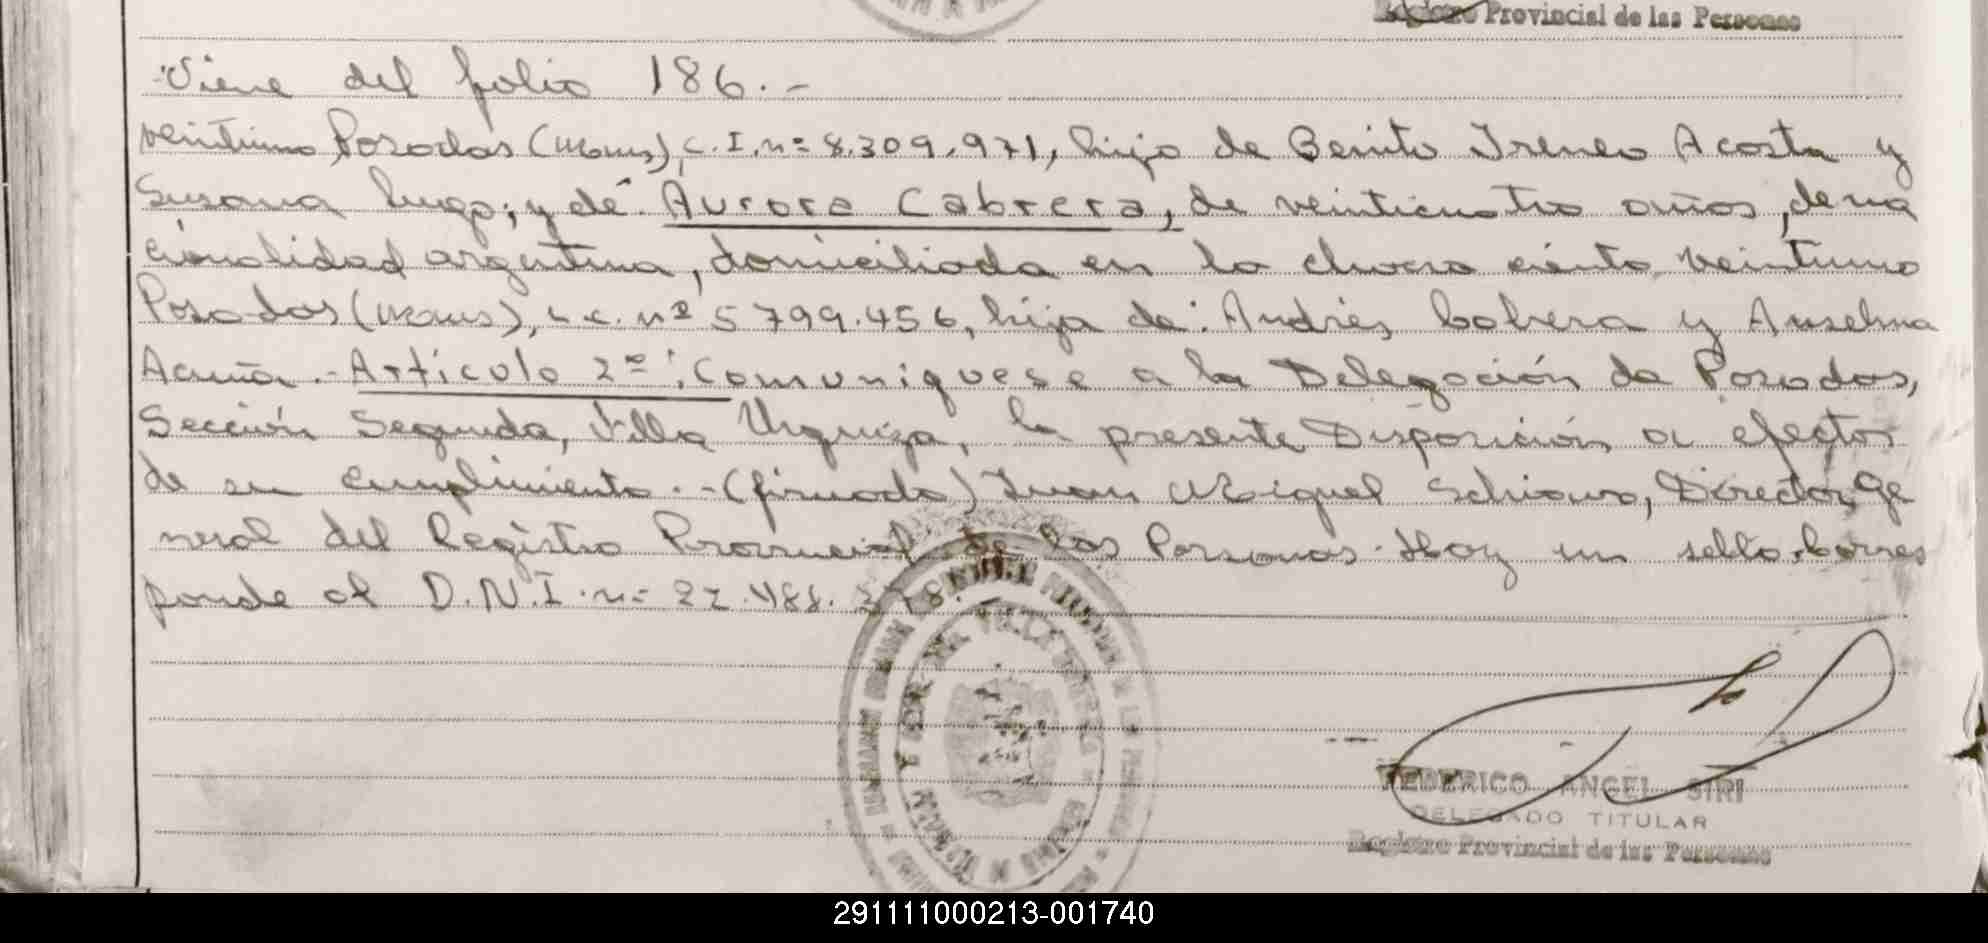 Registro Provincial de las Personas
Viene del folio 186.-
veintiuno Posadas (Mnes), C.I. nº 8.309.971, hijo de Benito Ireneo Acosta y
Susana Lugo; y de: Aurora Cabrera, de veinticuatro años, de na
cionalidad argentina, domiciliada en la chacra ciento veintiuno
Posadas (Mnes), L.C. nº 5799.456, hija de: Andrés Cabrera y Anselma
Acuña.- Artículo 2º: Comuníquese a la Delegación de Posadas,
Sección Segunda, Villa Urquiza, la presente Disposición a efectos
de su cumplimiento.- (firmado) Juan Miguel Schiavo, Director Ge
neral del Registro Provincial de las Personas. Hay un sello. Corres
ponde al D.N.I. nº 22.488.
FEDERICO ANGEL SIRI
DELEGADO TITULAR
Registro Provincial de las Personas
291111000213-001740